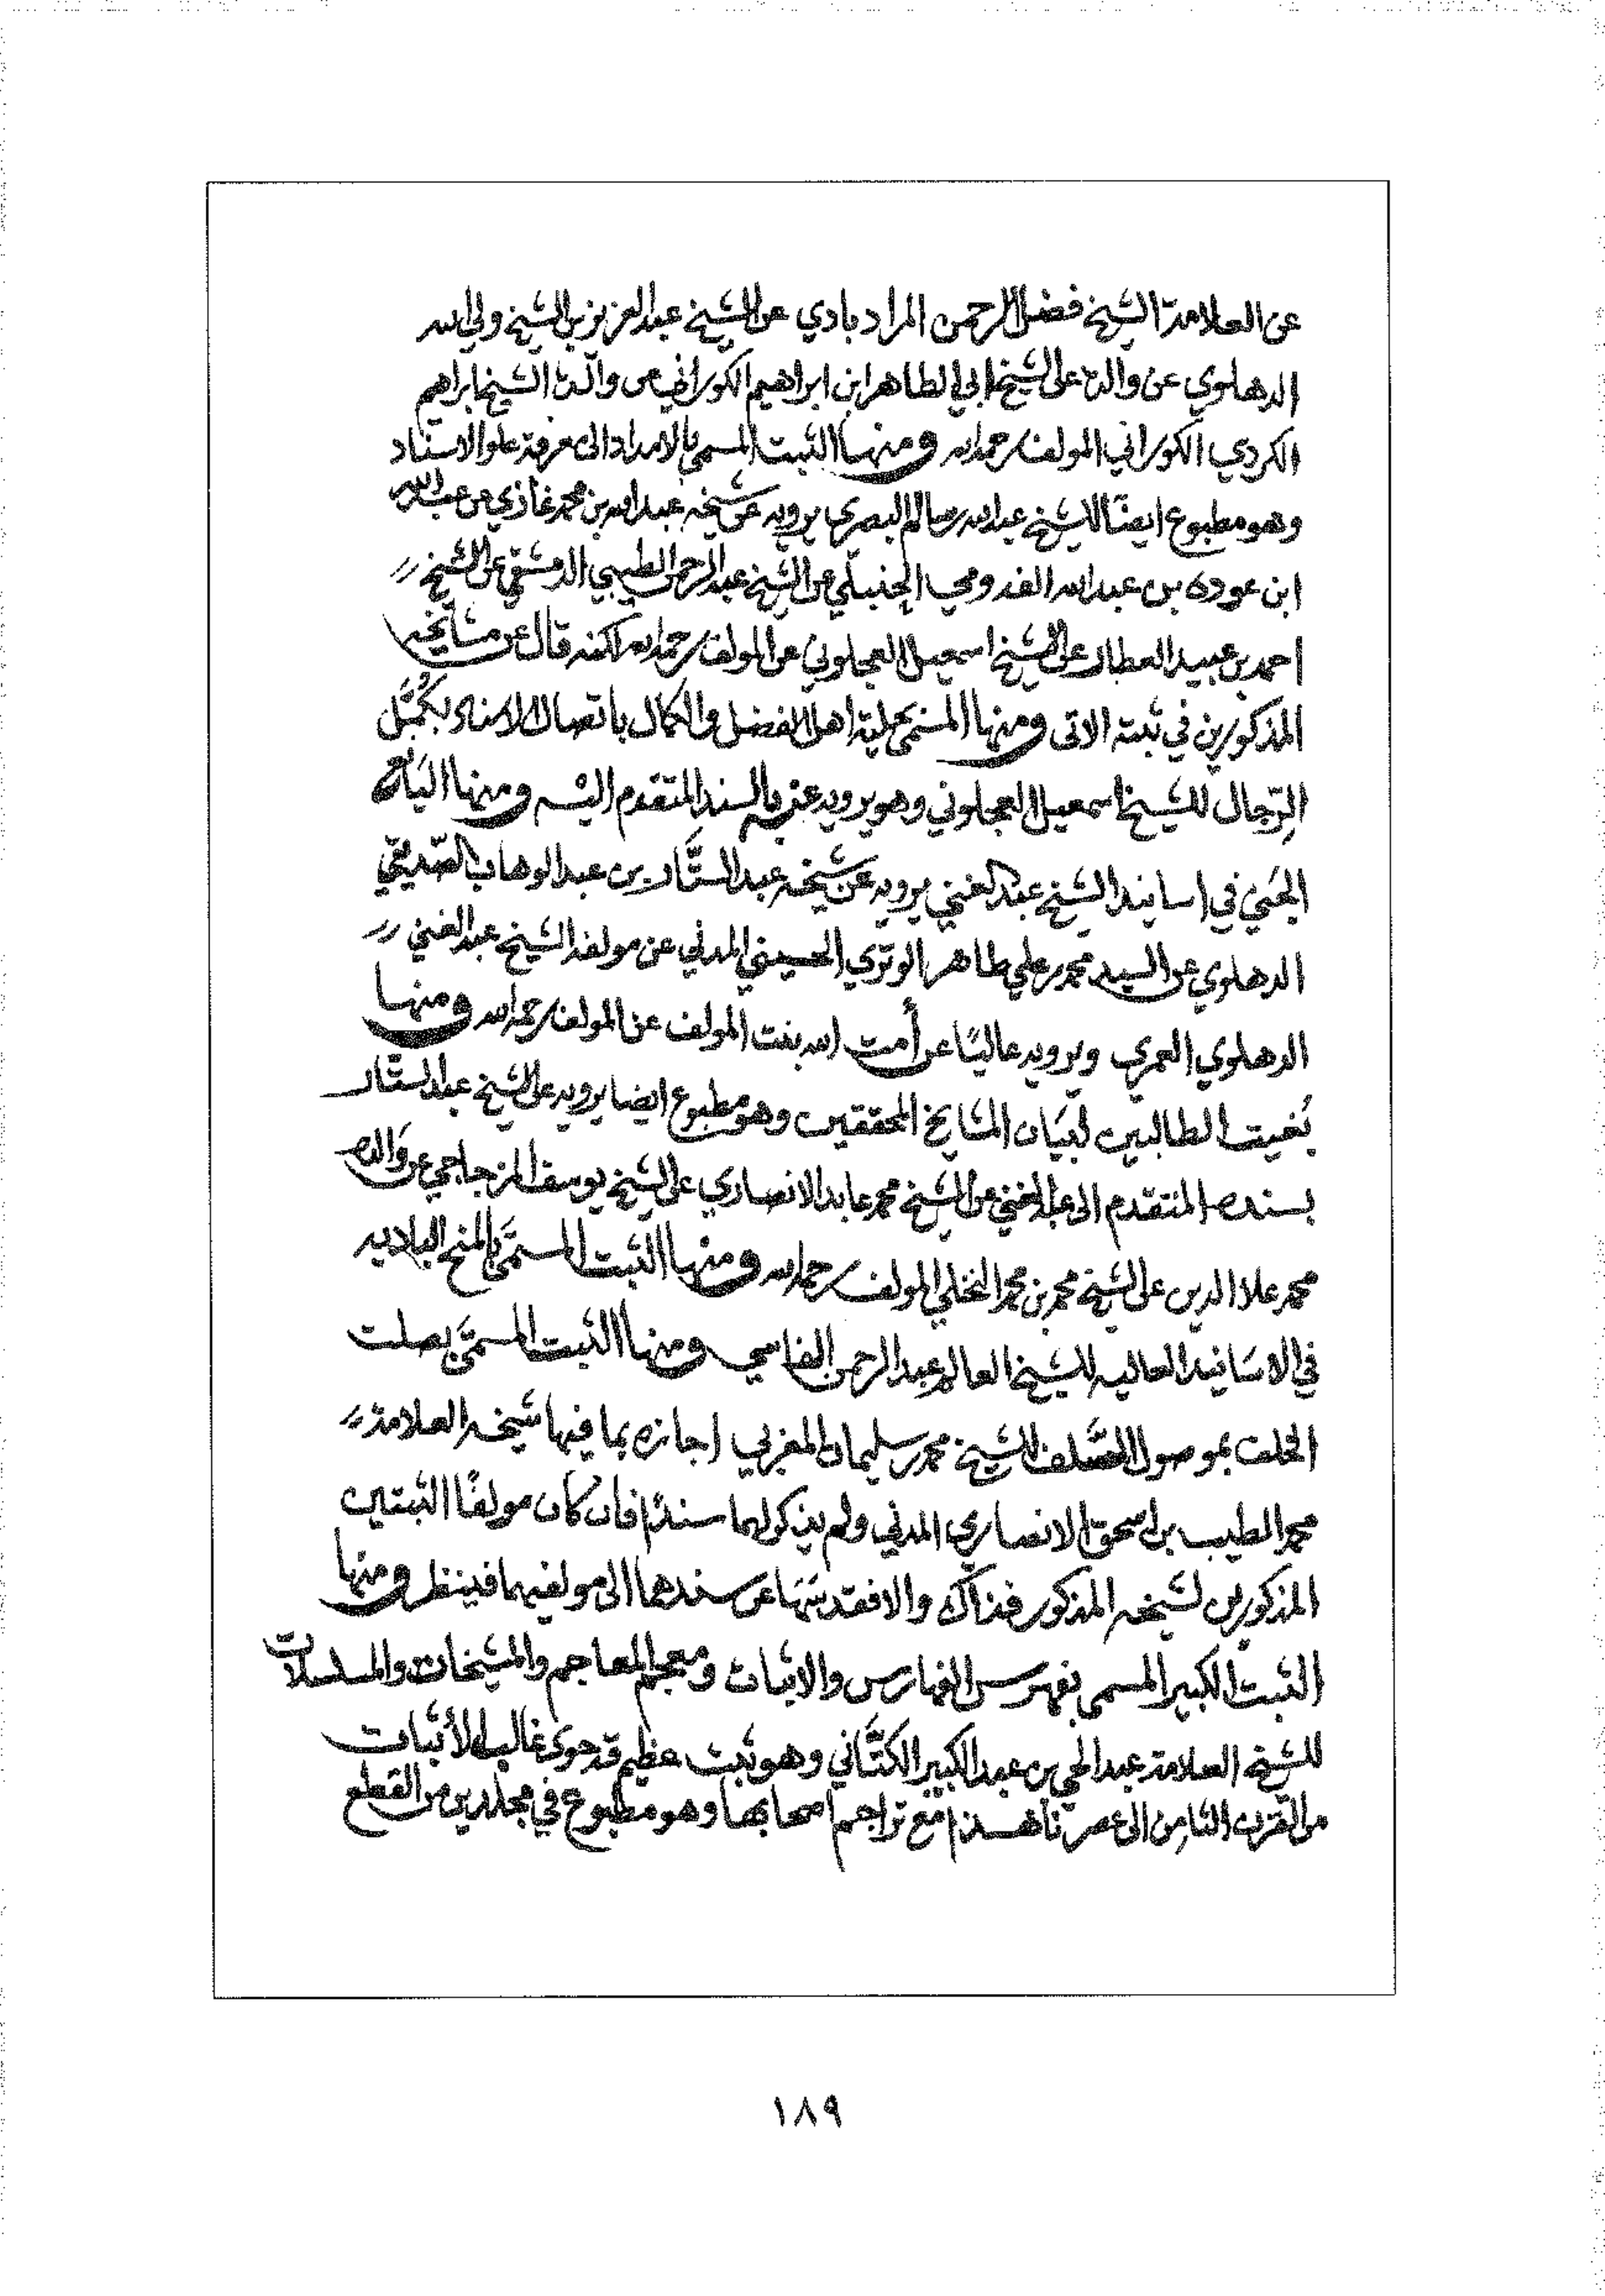 عن العلامة الشيخ فضل الرحمن المرادبادي عن الشيخ عبد العزيز بن الشيخ ولي الله
الدهلوي عن والده عن الشيخ ابي الطاهر ابن ابراهيم الكوراني عن والده الشيخ ابراهيم
الكردي الكوراني المولف رحمه الله ومنها الثبت المسمى بالامداد الى معرفة علو الاسناد
وهو مطبوع ايضًا للشيخ عبد الله بن سالم البصري يرويه عن شيخه عبد الله بن محمد غازي عن عبد الله
ابن عوده بن عبد الله القدومي الحنبلي عن الشيخ عبد الرحمن الطيبي الدمشقي عن الشيخ
احمد بن عبيد العطار عن الشيخ اسمعيل العجلوني عن المولف رحمه الله لكنه قال عن مشايخه
المذكورين في ثبته الاتى ومنها المسمى بحلية اهل الفضل والكمال باتصال الاسناد بكُمَّل
الرِّجال للشيخ اسمعيل العجلوني وهو يرويه عنه بالسند المتقدم اليه ومنها اليانع
الجَنِيّ في اسانيد الشيخ عبد الغني يرويه عن شيخه عبد السَّتَّار بن عبد الوهاب الصّديقي
الدهلوي عن السيد محمد بن علي طاهر الوتري الحسيني المدني عن مولفه الشيخ عبد الغني
الدهلوي العمري ويرويه عاليًا عن أمت الله بنت المولف عن المولف رحمه الله ومنها
بُغيت الطالبين لبيَان المشايخ المحققين وهو مطبوع ايضا يرويه عن الشيخ عبد الستّار
بسنده المتقدم الى عبد الغني عن الشيخ محمد عابد الانصاري عن الشيخ يوسف المزجاجي عن وَالده
محمد علا الدين عن الشيخ محمد بن محمد النخلي المولف رحمه الله ومنها الثبت المسمَّى بالمنح الباديه
في الاسَانيد العاليه للشيخ العالم عبد الرحمن الفاسي ومنها الثبت المسمَّى بصلت
الخلف بموصول السَّلف للشيخ محمد بن سليمان المغربي اجازه بما فيها شيخه العلامة
محمد الطيب بن اسحق الانصاري المدني ولم يذكر لهما سندًا فان كان مولفًا الثبتين
المذكورين لشيخه المذكور فذاك والا فقد سَهَا عن سندهما الى مولفيهما فينظر ومنها
الثبت الكبير المسمى بفهرس الفهارس والاثبات ومعجم المعاجم والمشيخات والمسلسلات
للشيخ العلامة عبد الحي بن عبد الكبير الكتّاني وهو ثبت عظيم قد حوى غالب الأثبات
من القرن الثامن الى عصرنا هذا مع تراجم اصحابها وهو مطبوع في مجلدين من القطع
١٨٩